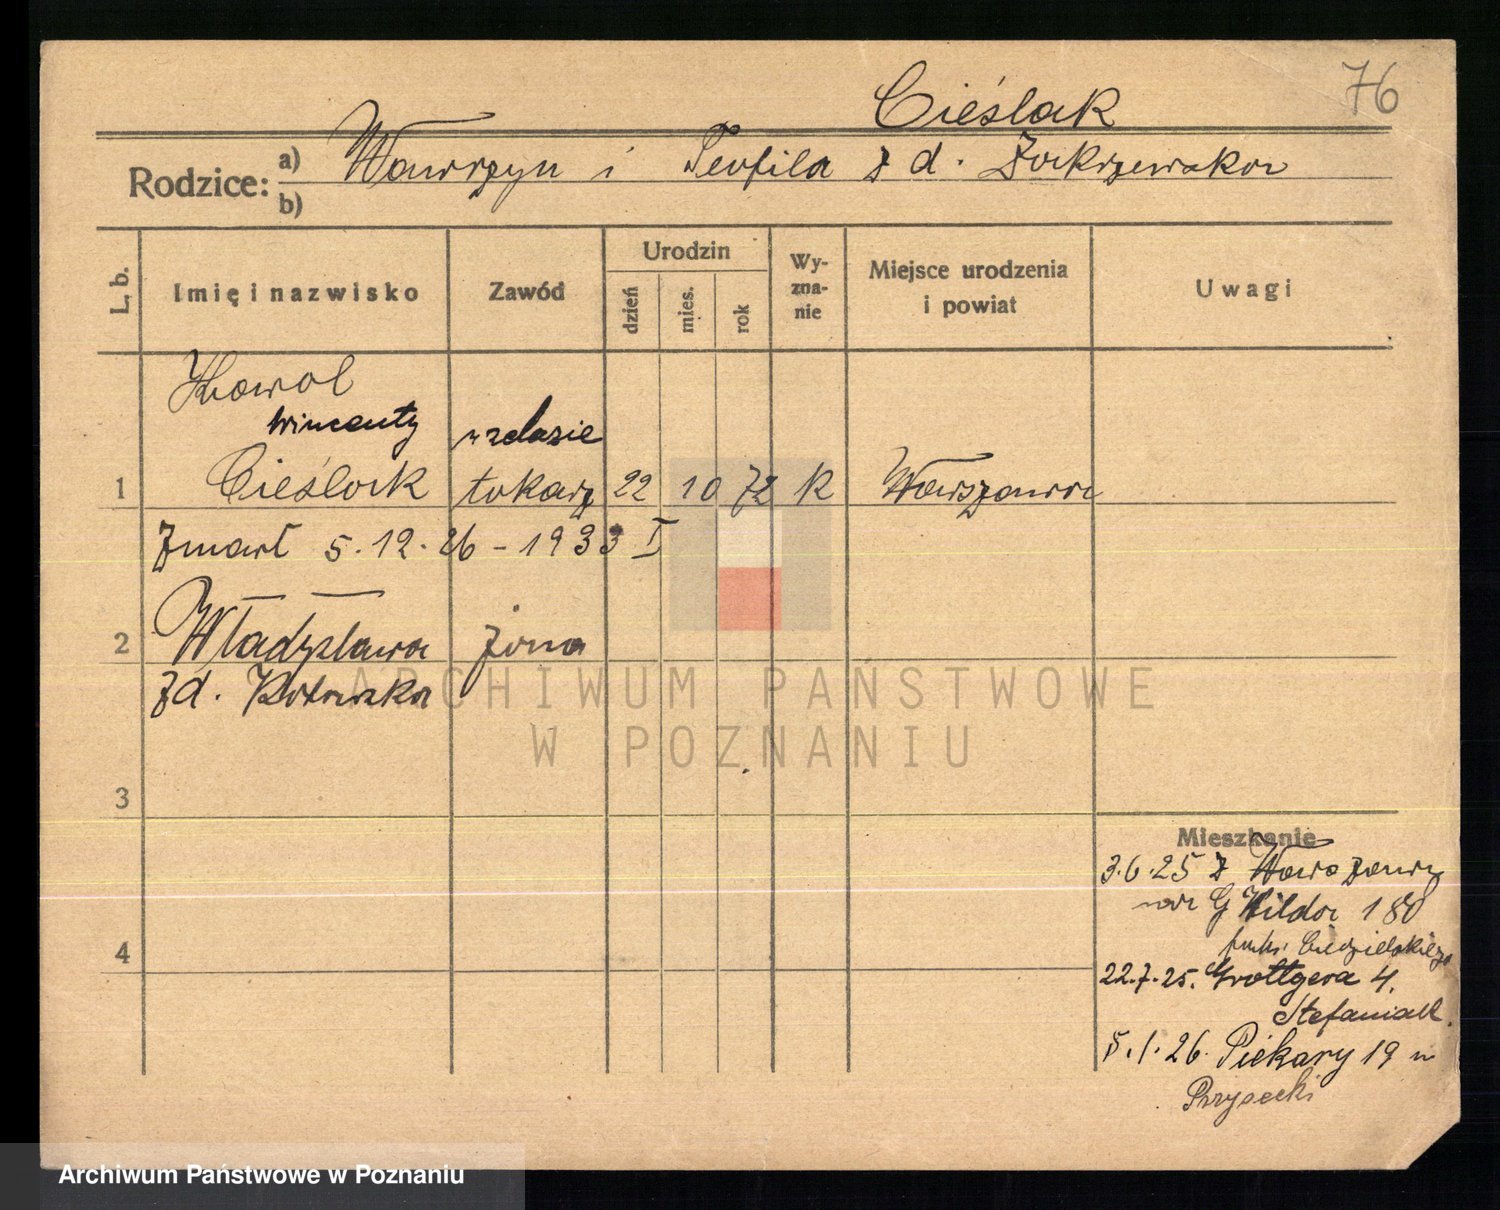 76
Cieślak
Rodzice: a) Wawrzyn i Teofila z d. Zakrzewska
b)
L. b. Imię i nazwisko Zawód Urodzin Wyznanie Miejsce urodzenia i powiat Uwagi
dzień mies. rok
Wincenty
1 Cieślak tokarz 22 10 72 K Warszawa
Zmarł 5.12.26 - 1933 I
2 Władysława żona
z d. Kotowska
3
Mieszkanie
3.6.25 z Warszawy
na G Wilda 180
4
22.7.25. Grottgera 4.
Stefaniak.
5.1.26. Piekary 19
Przysecki
ARCHIWUM PAŃSTWOWE
W POZNANIU
Archiwum Państwowe w Poznaniu